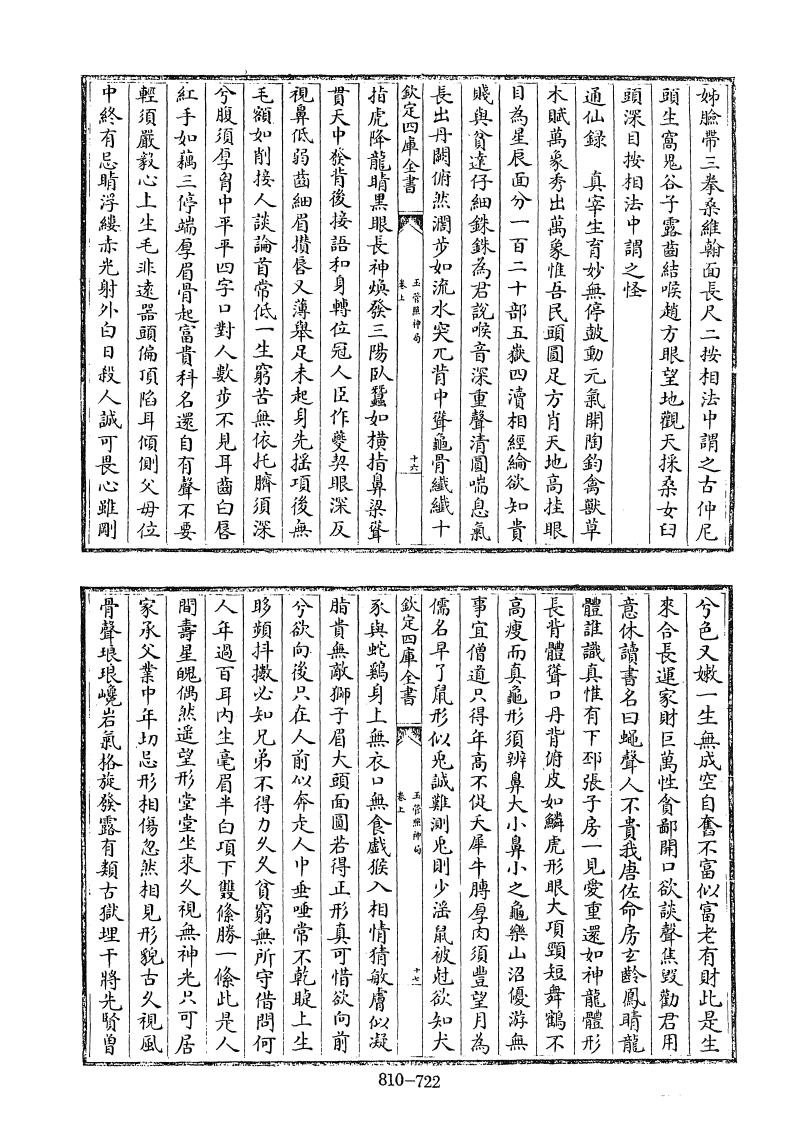 姊臉帶三拳桑維翰面長尺二按相法中謂之古仲尼
頭生窩鬼谷子露齒結喉趙方眼望地觀天採桑女臼
頭深目按相法中謂之怪
通仙録　真宰生育妙無停鼓動元氣開陶鈞禽獸草
木賦萬象秀出萬象惟吾民頭圓足方肖天地高挂眼
目為星辰面分一百二十部五嶽四瀆相經綸欲知貴
賤與貧達仔細銖銖為君說喉音深重聲清圓喘息氣
長出丹闕俯然濶步如流水突兀背中聳龜骨纖纖十
欽定四庫全書
玉管照神局
卷上
十六
指虎降龍睛黒眼長神煥發三陽臥蠶如横指鼻梁聳
貫天中發背後接語和身轉位冠人臣作夔契眼深反
視鼻低弱齒細眉攢唇又薄舉足未起身先揺項後無
毛額如削接人談論首常低一生窮苦無依托臍須深
兮腹須厚胷中平平四字口對人數步不見耳齒白唇
紅手如藕三停端厚眉骨起富貴科名還自有聲不要
輕須嚴毅心上生毛非遠器頭偏頂陷耳傾側父母位
中終有忌睛浮縷赤光射外白日殺人誠可畏心雖剛
兮色又嫩一生無成空自奮不富似富老有財此是生
來合長運家財巨萬性貪鄙開口欲談聲焦毁勸君用
意休讀書名曰蠅聲人不貴我唐佐命房玄齡鳳睛龍
體誰識真惟有下邳張子房一見愛重還如神龍體形
長背體聳口丹背俯皮如鱗虎形眼大項頸短舞鶴不
高瘦而真龜形須辨鼻大小鼻小之龜樂山沼優游無
事宜僧道只得年高不從夭犀牛膊厚肉須豐望月為
儒名早了鼠形似兎誠難測兎則少滛鼠被尅欲知犬
欽定四庫全書
玉管照神局
卷上
十七
豕與蛇鷄身上無衣口無食戯猴入相情猜敏膚似凝
脂貴無敵獅子眉大頭面圓若得正形真可惜欲向前
兮欲向後只在人前似奔走人中垂唾常不乾睫上生
眵頻抖擻必知兄弟不得力久久貧窮無所守借問何
人年過百耳内生毫眉半白項下雙絛勝一絛此是人
間壽星魄偶然遥望形堂堂坐來久視無神光只可居
家承父業中年切忌形相傷忽然相見形貌古久視風
骨聲琅琅巉岩氣格旋發露有類古獄埋干將先賢曾
810-722